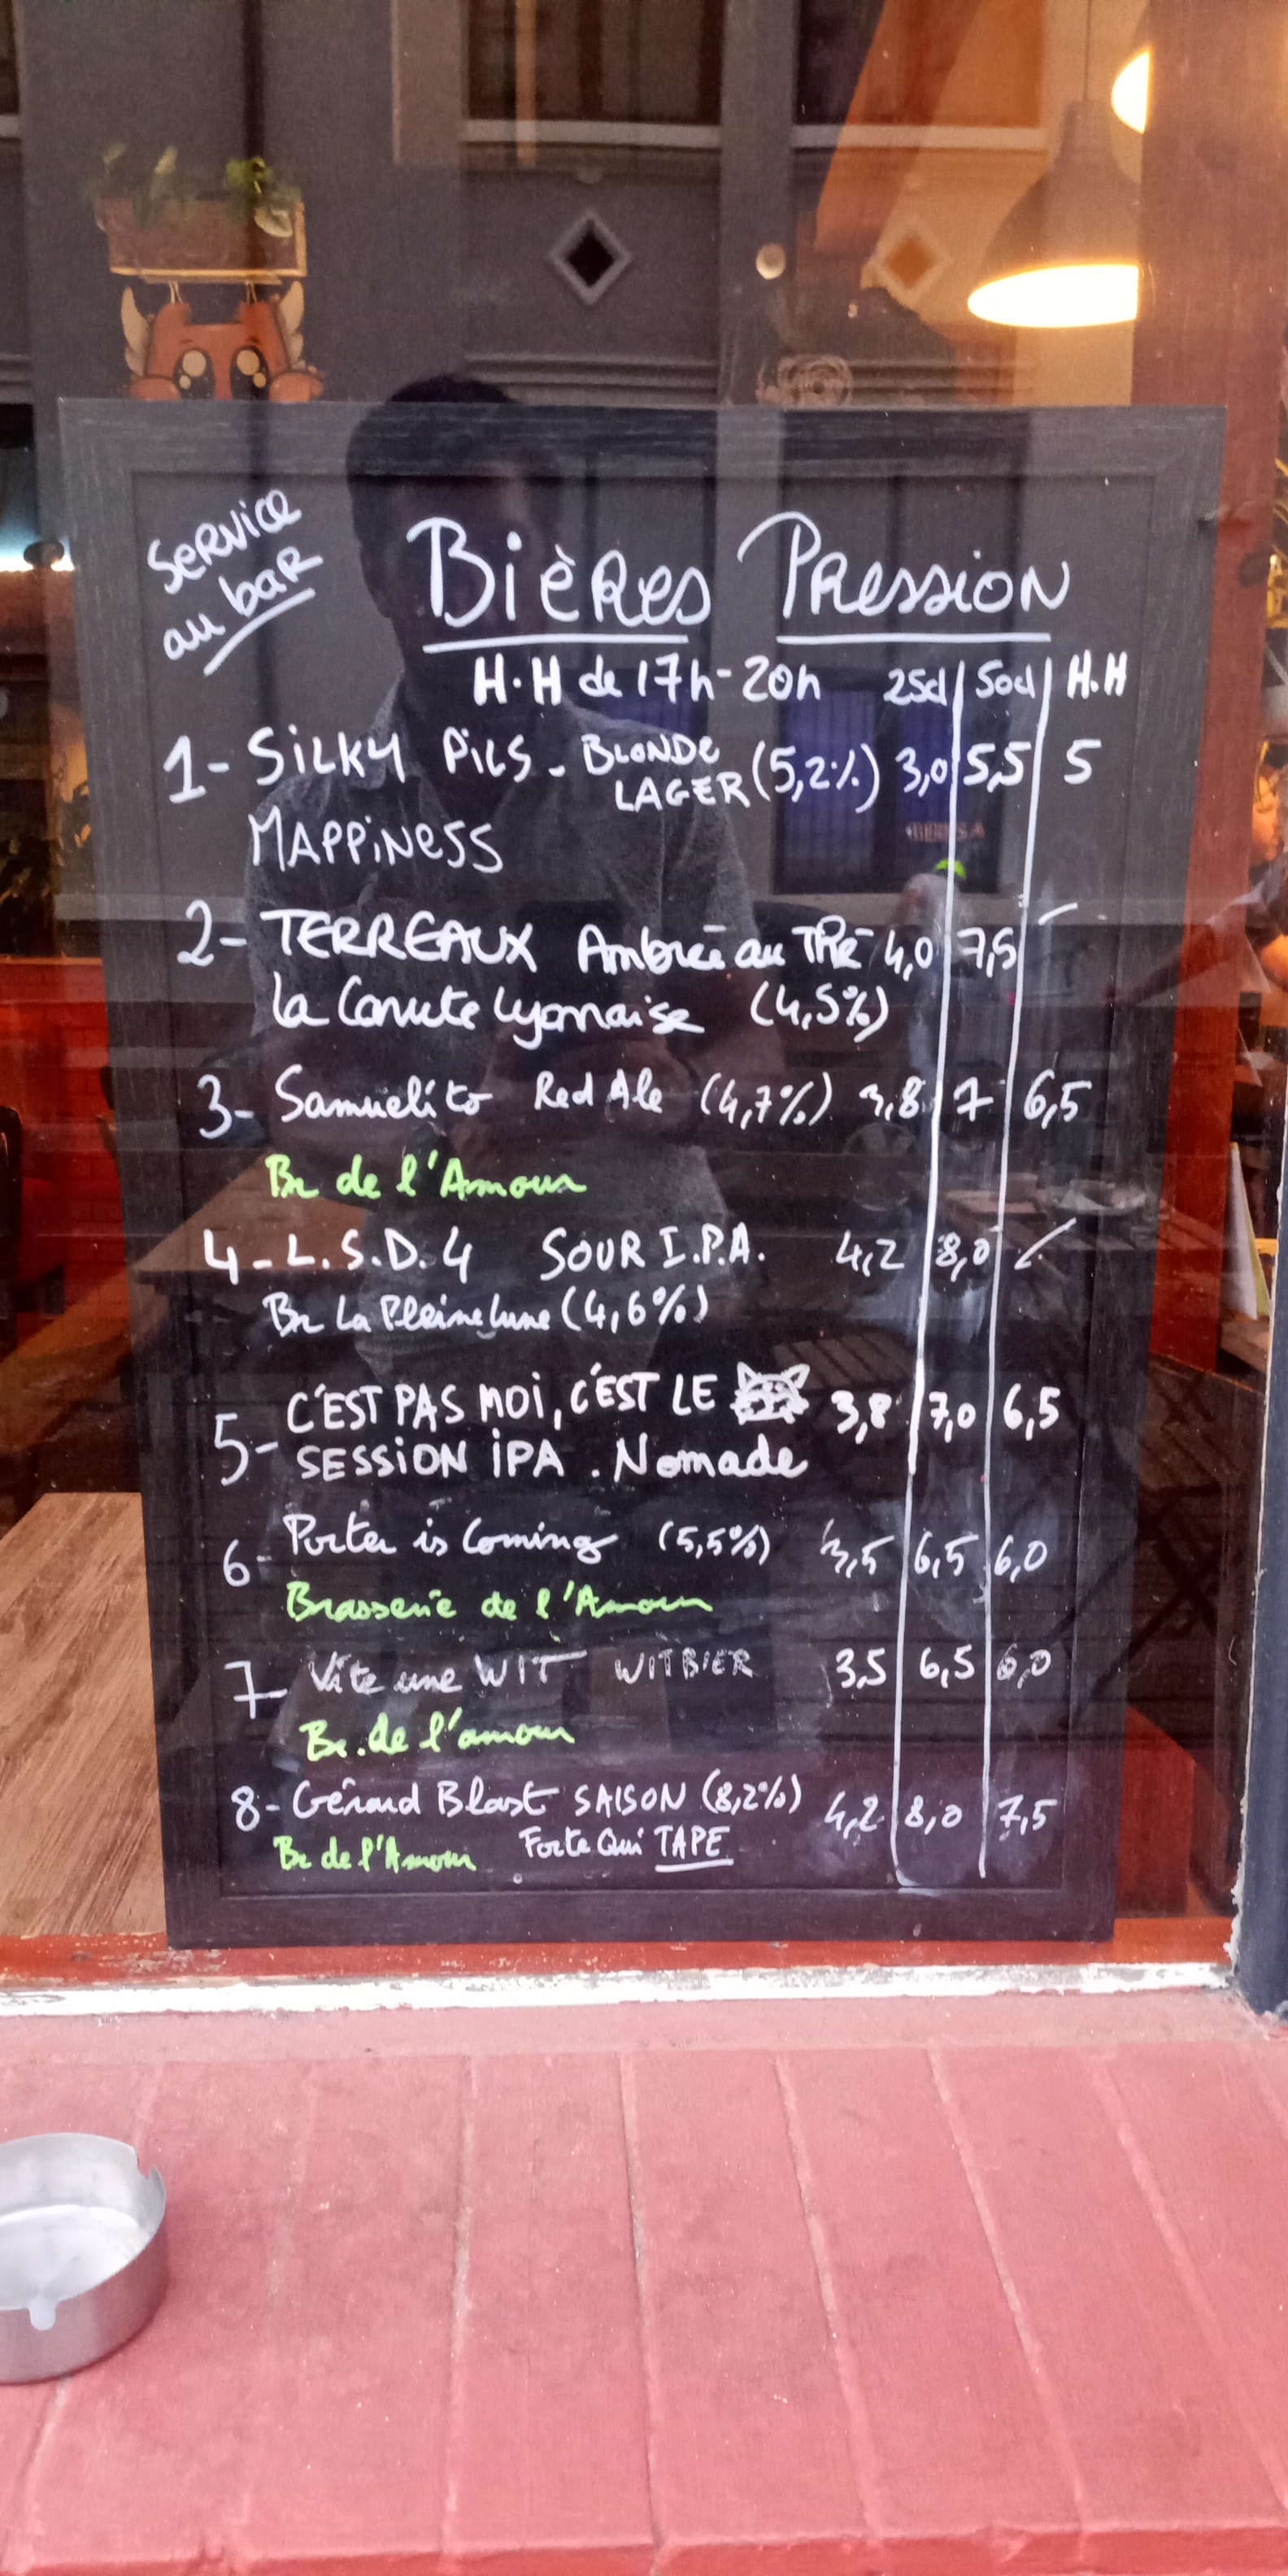 Service
au bar
Bières Pression
H.H de 17h-20h 25cl 50cl H.H
1- SILKY PILS - BLONDE LAGER (5,2%) 3,0 5,5 5
MAPPINESS
2- TERREAUX Ambrée au THé 4,0 7,5 -
la Canute Lyonnaise (4,5%)
3- Samuelito Red Ale (4,7%) 3,8 7 6,5
Br de l'Amour
4- L.S.D.4 SOUR I.P.A. 4,2 8,0 /
Br La Pleine Lune (4,6%)
5- C'EST PAS MOI, C'EST LE 3,8 7,0 6,5
SESSION IPA . Nomade
6- Porter is Coming (5,5%) 3,5 6,5 6,0
Brasserie de l'Amour
7- Vite une WIT WITBIER 3,5 6,5 6,0
Br. de l'amour
8- Gérard Blast SAISON (8,2%) 4,2 8,0 7,5
Br de l'Amour Forte Qui TAPE